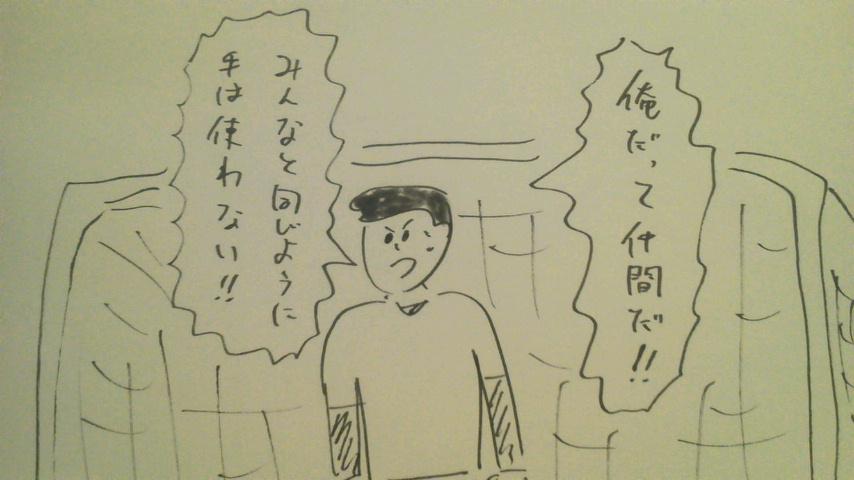 俺だって仲間だ!!
みんなと同じように
手は使わない!!